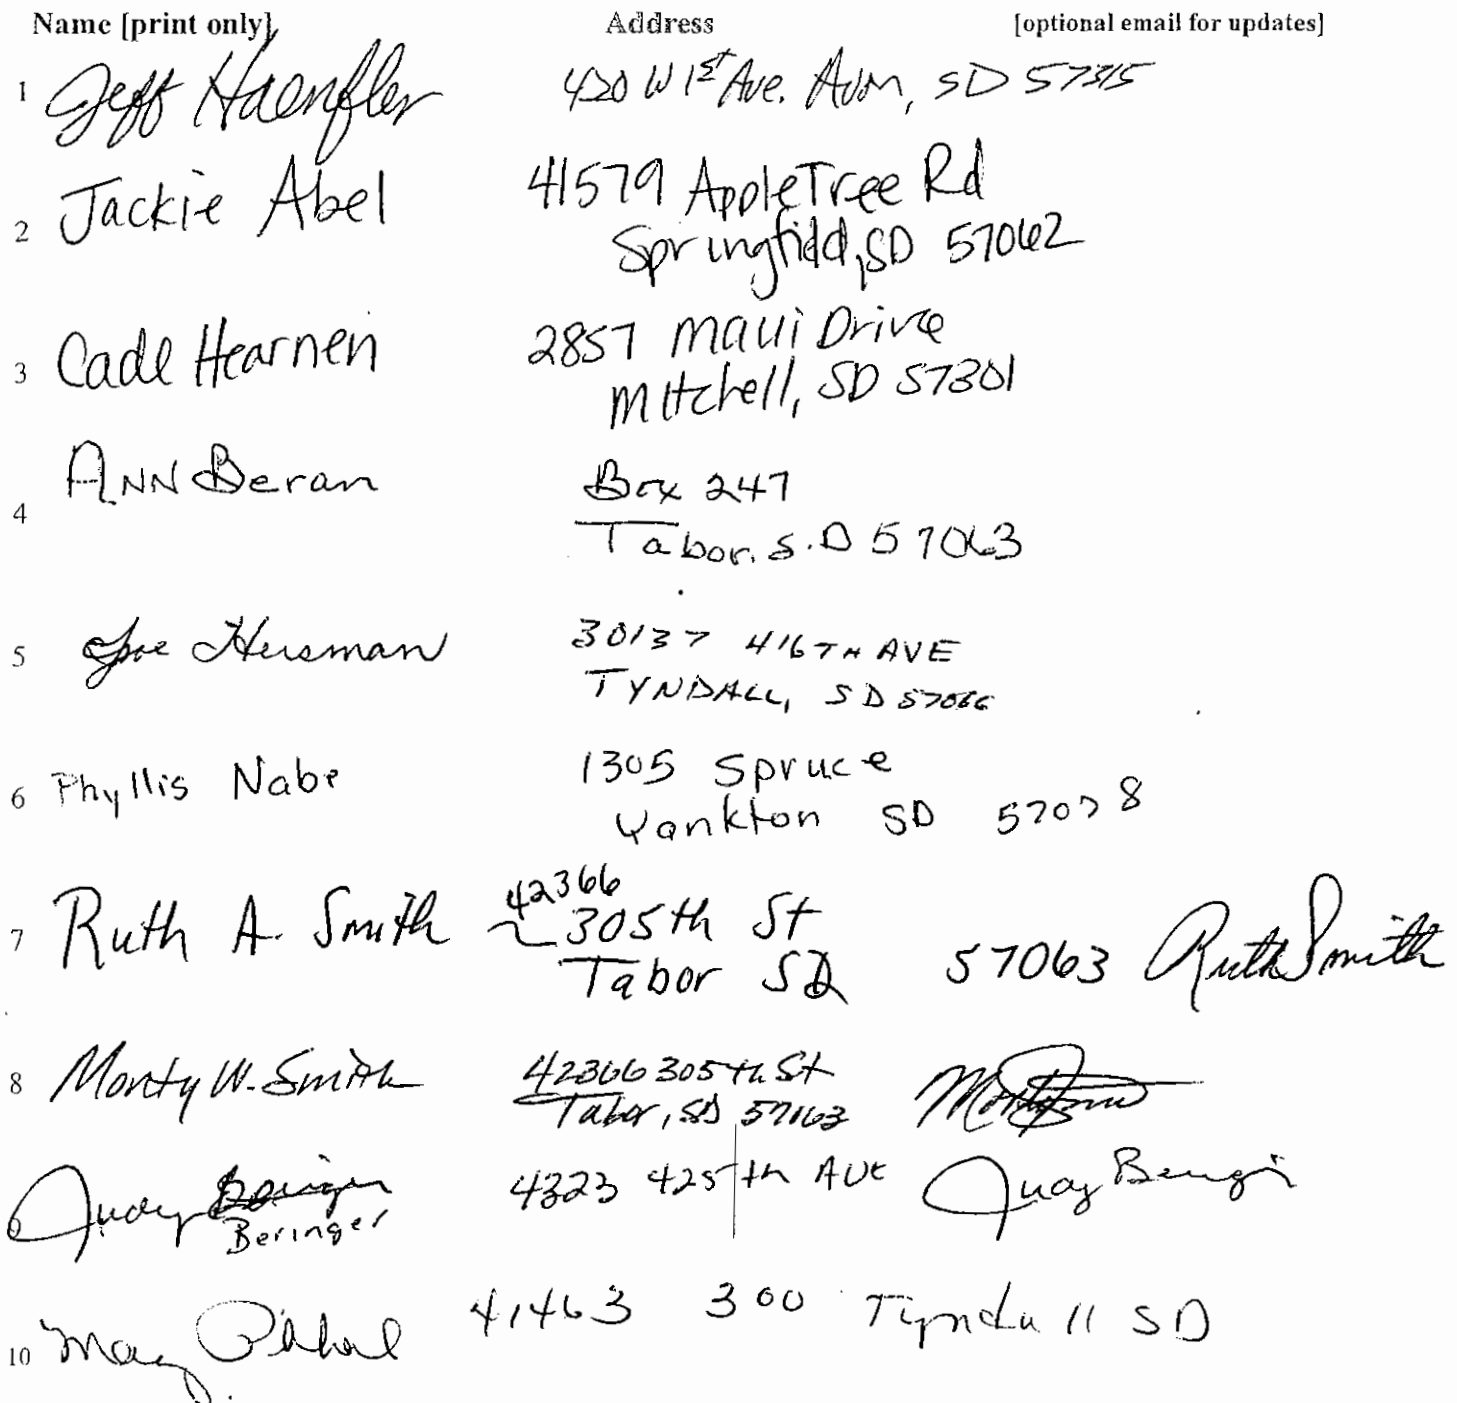 Name [print only] Address [optional email for updates]
1 Jeff Haenfler 420 W 1st Ave. Avon, SD 57315
2 Jackie Abel 41579 AppleTree Rd
Springfield, SD 57062
3 Cade Hearnen 2857 Maui Drive
Mitchell, SD 57301
4 ANN Beran Box 247
Tabor, S.D 57063
5 Joe Hersman 30137 416TH AVE
TYNDALL, SD 57066
6 Phyllis Nabe 1305 Spruce
Yankton SD 57078
7 Ruth A. Smith 42366
305th St
Tabor SD 57063 Ruth Smith
8 Monty W. Smith 42366 305th St
Tabor, SD 57063
9 Judy 4323 425th AVE Judy
Beringer
10 Mary 41463 300 Tyndall SD